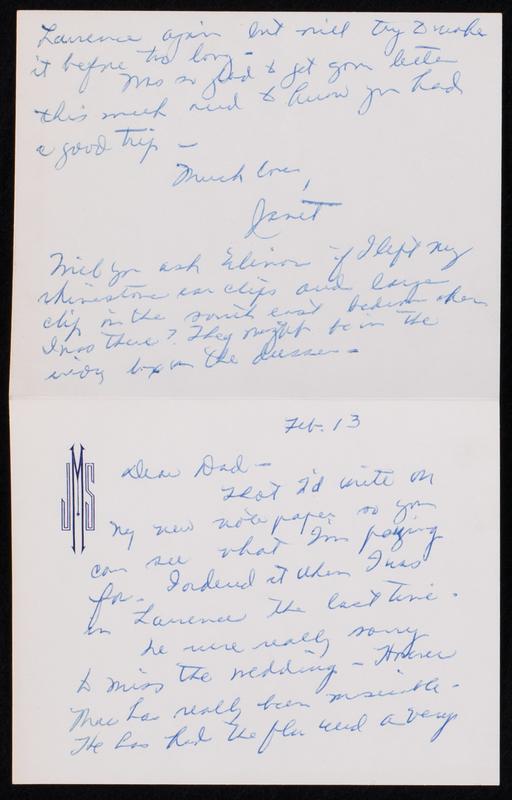 Lawrence again but will try to make
it before too long -
Was so glad to get your letter
this week and to know you had
a good trip -
Much love,
Janet
Will you ask Elinor if I left my
rhinestone ear clips and large
clip in the south east bedroom when
I was there? They might be in the
ivory box on the dresser -
Feb. 13
JMS
Dear Dad -
Thot I'd write on
my new note paper so you
can see what I'm paying
for. I ordered it when I was
in Lawrence the last time.
We were really sorry
to miss the wedding - However
Mac has really been miserable -
He has had the flu and a very